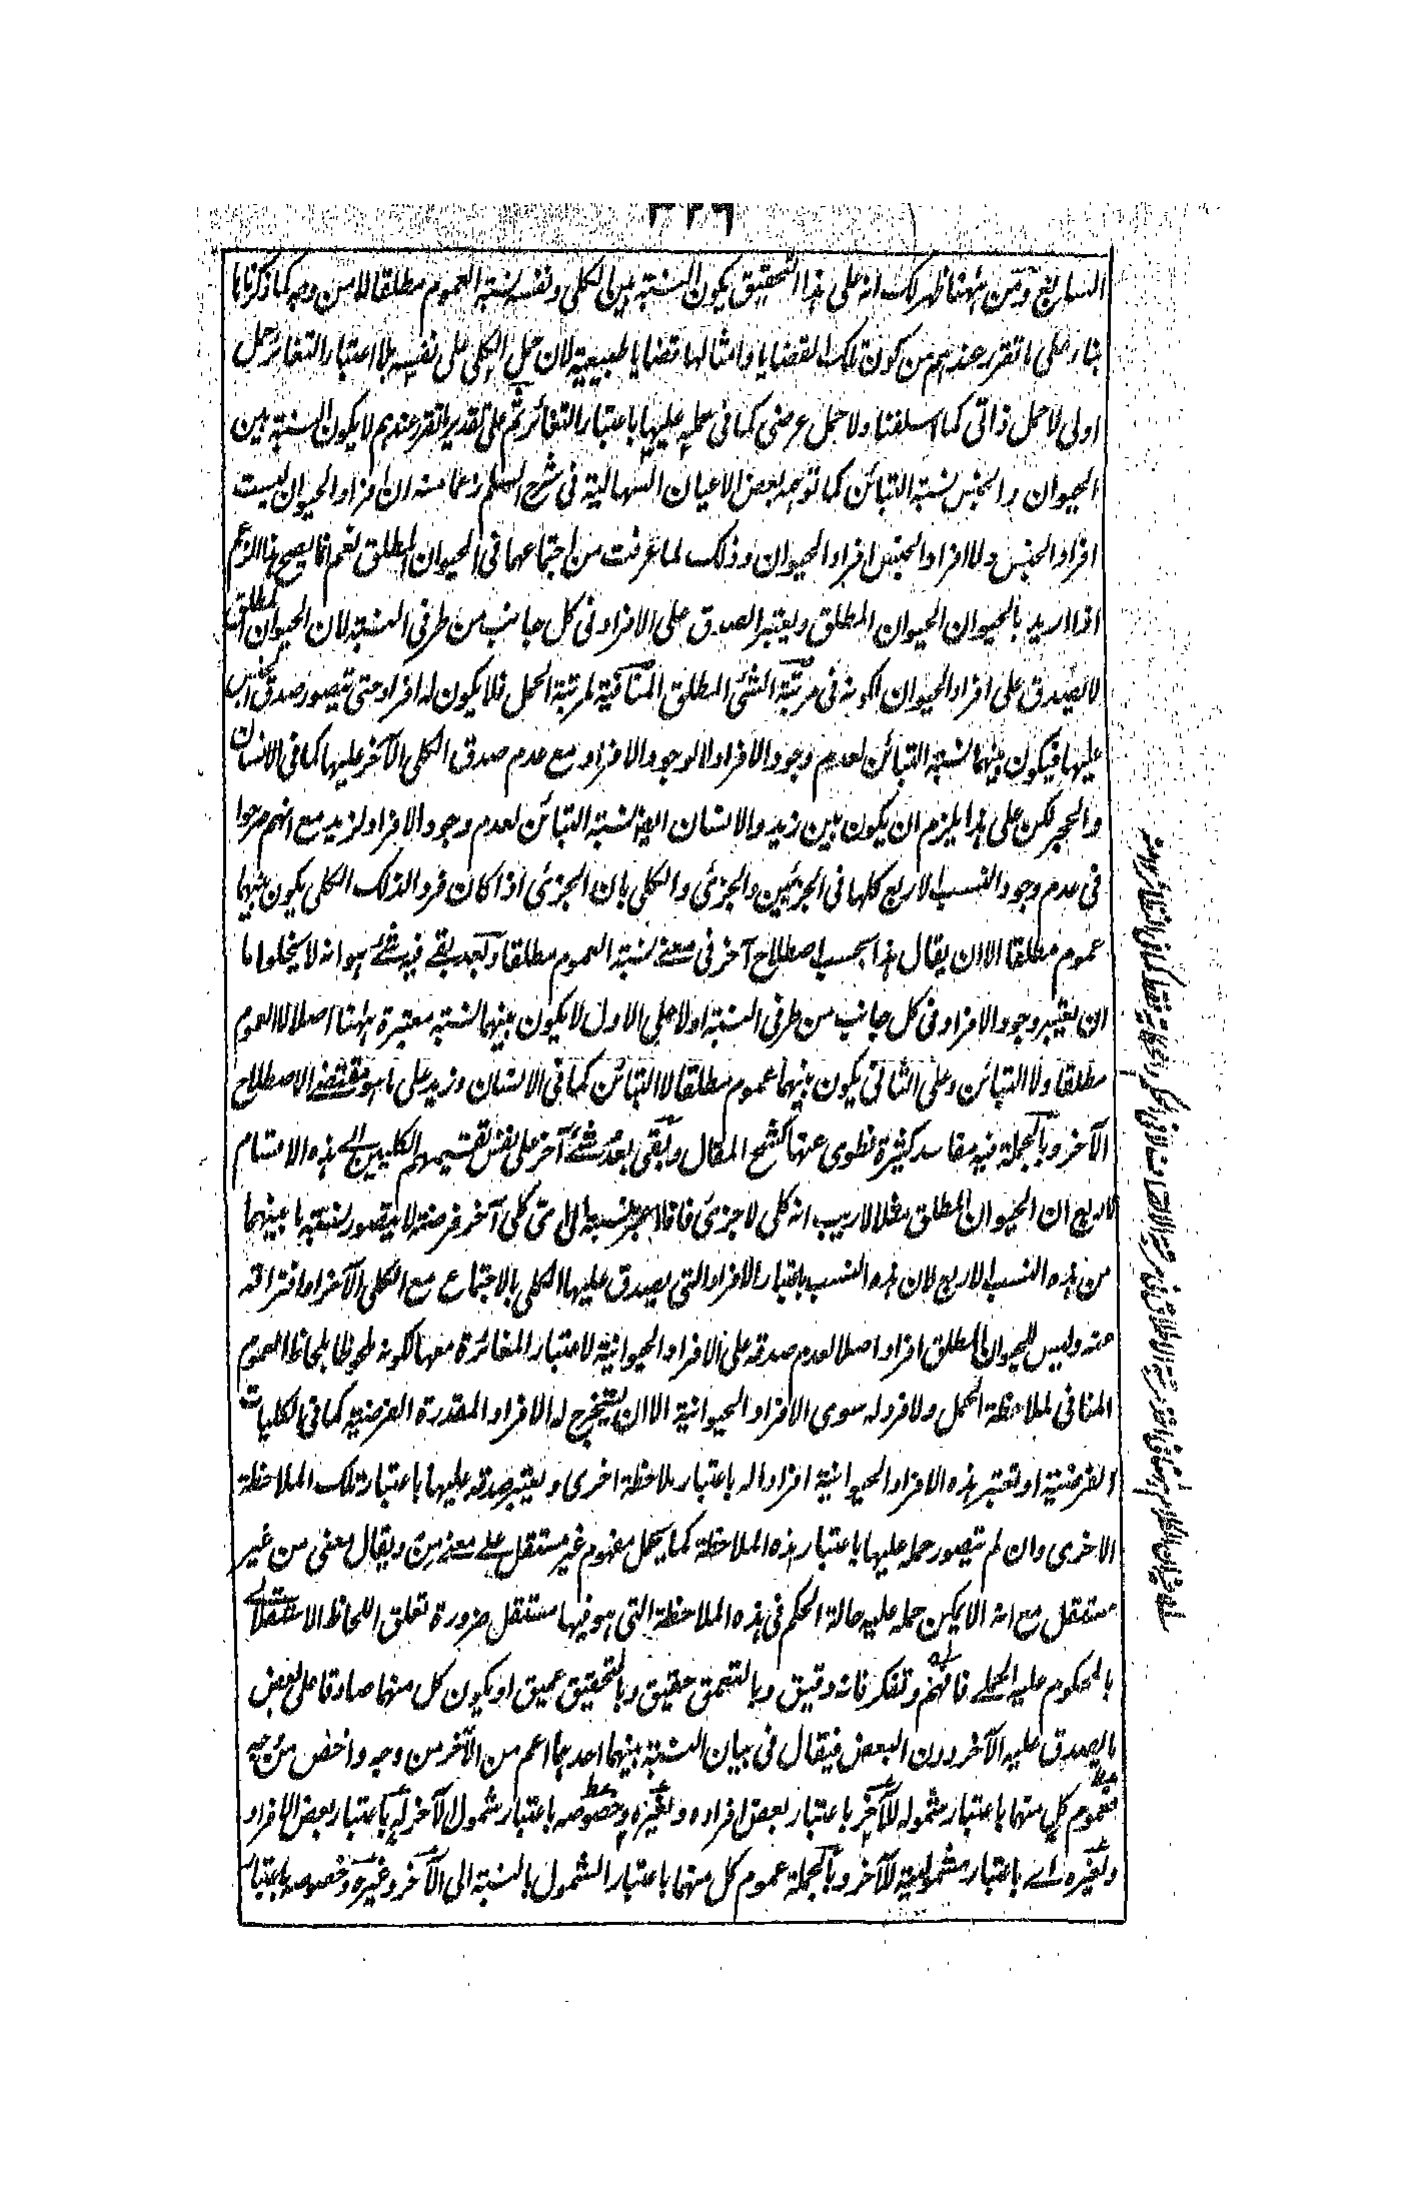 ٣٢٩
السابع ومن ههنا ظهر لك انه على هذا التحقيق يكون النسبة بين الكلي ونفسه نسبة العموم مطلقا لا من وجه كما ذكرنا
بناء على ما تقرر عندهم من كون تلك القضايا وامثالها قضايا طبيعية لان حمل الكلي على نفسه بلا اعتبار التغائر حمل
اولى لا حمل ذاتي كما اسلفنا ولا حمل عرضي كما في حمله عليها باعتبار التغائر ثم على تقدير ما تقرر عندهم لا يكون النسبة بين
الحيوان والجنس نسبة التبائن كما توهمه بعض الاعيان السهالية في شرح السلم زعما منه ان افراد الحيوان ليست
افراد الجنس ولا افراد الجنس افراد الحيوان وذلك لما عرفت من اجتماعهما في الحيوان المطلق نعم انما يصح هذا الزعم
اذا اريد بالحيوان الحيوان المطلق ويعتبر الصدق على الافراد في كل جانب من طرفي النسبة لان الحيوان المطلق
لا يصدق على افراد الحيوان لكونه في مرتبة الشئ المطلق المنافية لمرتبة الحمل فلا يكون له افراد حتى يتصور صدق الجنس
عليها فيكون بينهما نسبة التبائن لعدم وجود الافراد لا لوجود الافراد مع عدم صدق الكلي الآخر عليها كما في الانسان
والحجر لكن على هذا يلزم ان يكون بين زيد والانسان ايضا نسبة التبائن لعدم وجود الافراد لزيد مع انهم صرحوا
في عدم وجود النسب الاربع كلها في الجزئيين والجزئي والكلي بان الجزئي اذا كان فردا لذلك الكلي يكون بينهما
عموم مطلقا الا ان يقال هذا بحسب اصطلاح آخر في معنے نسبة العموم مطلقا وبعد بقے فيه شئے هو انه لا يخلو اما
ان يعتبر وجود الافراد في كل جانب من طرفي النسبة اولا على الاول لا يكون بينهما نسبة معتبرة ههنا اصلا لا العموم
مطلقا ولا التبائن وعلى الثاني يكون بينهما عموم مطلقا لا التبائن كما في الانسان وزيد على ما هو مقتضے الاصطلاح
الآخر وبالجملة فيه مفاسد كثيرة نطوى عنها كشح المقال وبقى بعد شئے آخر على نفس تقسيمهم الكليين الے هذه الاقسام
الاربع ان الحيوان المطلق مثلا لاريب انه كلي لا جزئي فاذا اعتبر نسبة الى اى كلي آخر فرضته لا يتصور نسبته ما بينهما
من هذه النسب الاربع لان هذه النسب باعتبار الافراد التي يصدق عليها الكلي بالاجتماع مع الكلي الآخر او افتراقه
عنه وليس للحيوان المطلق افراد اصلا لعدم صدقه على الافراد الحيوانية لاعتبار المغائرة معها لكونه ملحوظا بلحاظ العموم
المنافى لملاحظة الحمل ولا فرد له سوى الافراد الحيوانية الا ان يستخرج له الافراد المقدرة الفرضية كما في الكليات
الفرضية او تعتبر هذه الافراد الحيوانية افرادا له باعتبار ملاحظة اخرى ويعتبر صدقه عليها باعتبار تلك الملاحظة
الاخرى وان لم يتصور حمله عليها باعتبار هذه الملاحظة كما يحمل مفهوم غير مستقل علے معنے من ويقال معنى من غير
مستقل مع انه لا يمكن حمله عليه حالة الحكم في هذه الملاحظة التي هو فيها مستقل ضرورة تعلق اللحاظ الاستقلالے
بالمحكوم عليه الحملے فافهم وتفكر فانه دقيق وبالتعمق حقيق وبالتحقيق عميق او يكون كل منهما صادقا على بعض
ما يصدق عليه الآخر دون البعض فيقال في بيان النسبة بينهما احدهما اعم من الآخر من وجه واخص من وجه
فعموم كل منهما باعتبار شموله للآخر باعتبار بعض افراده ولغيره وخصوصه باعتبار شمول الآخر له باعتبار بعض الافراد
ولغيره اے باعتبار مشموليته للآخر وبالجملة عموم كل منهما باعتبار الشمول بالنسبة الى الآخر وغيره وخصوصه باعتبار